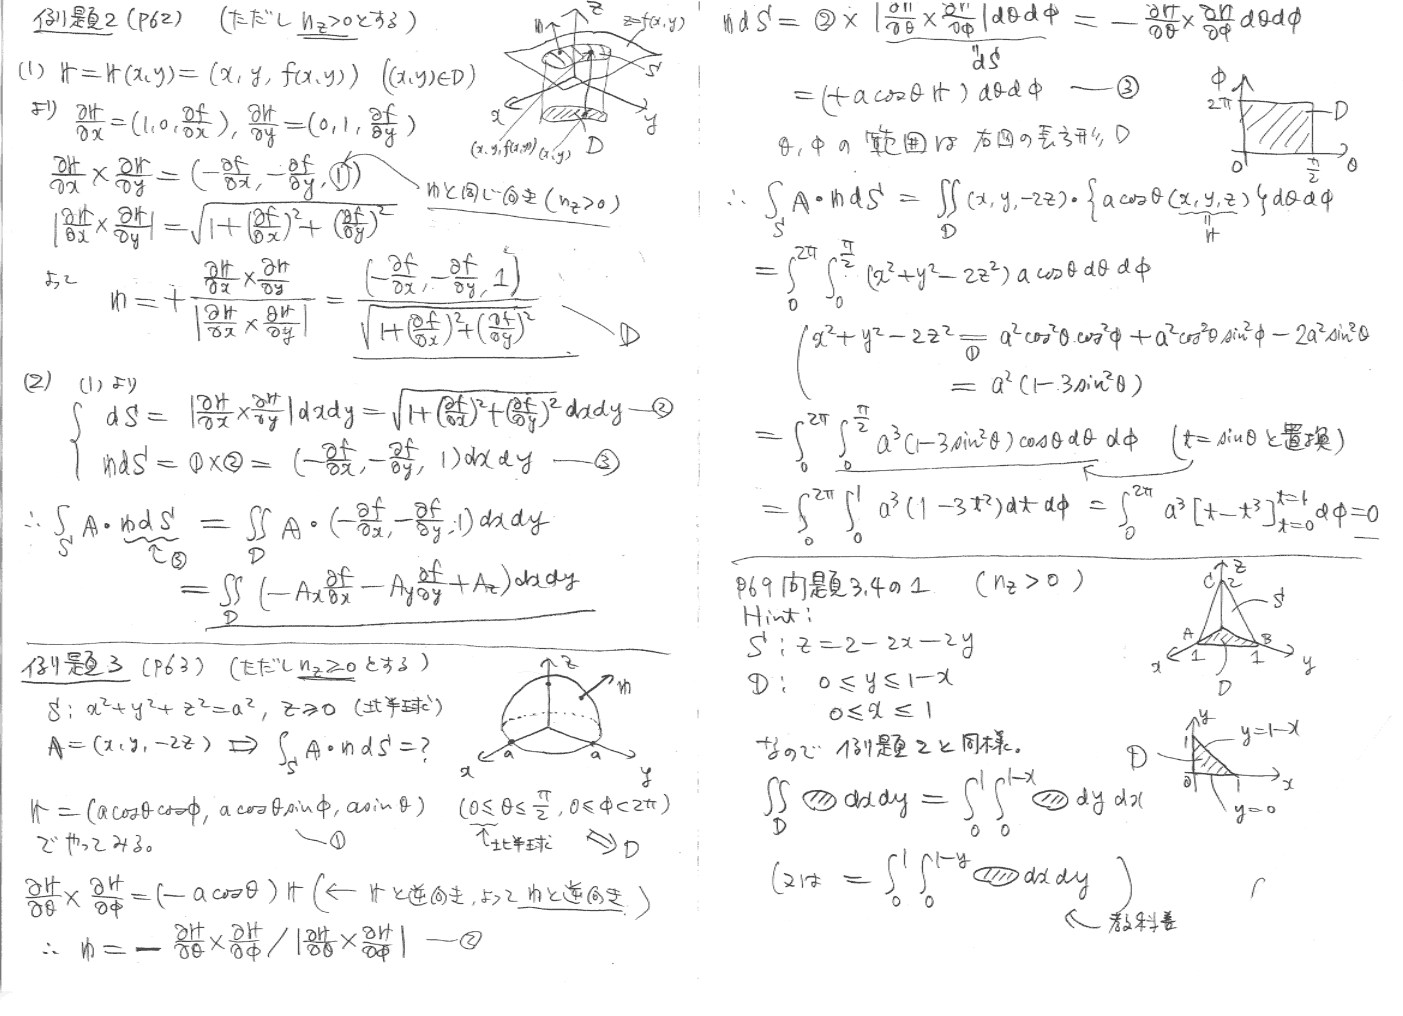 例題2 (P62) (ただし n_z>0とする)
(1) 𝕣=𝕣(x,y)=(x, y, f(x,y)) ((x,y)∈D)
より ∂𝕣/∂x=(1,0,∂f/∂x), ∂𝕣/∂y=(0,1,∂f/∂y)
∂𝕣/∂x×∂𝕣/∂y=(-∂f/∂x,-∂f/∂y,1)
𝕟と同じ向き (n_z>0)
|∂𝕣/∂x×∂𝕣/∂y|=√(1+(∂f/∂x)²+(∂f/∂y)²)
よって 𝕟=+(∂𝕣/∂x×∂𝕣/∂y)/|∂𝕣/∂x×∂𝕣/∂y| = (-∂f/∂x,-∂f/∂y,1)/√(1+(∂f/∂x)²+(∂f/∂y)²) ①
z
z=f(x,y)
𝕟
S
x
y
(x,y,f(x,y)) (x,y) D
(2) (1)より
dS=|∂𝕣/∂x×∂𝕣/∂y|dxdy=√(1+(∂f/∂x)²+(∂f/∂y)²)dxdy—②
𝕟dS=①×②=(-∂f/∂x,-∂f/∂y,1)dxdy —③
∴∫_S 𝔸・𝕟dS = ∬_D 𝔸・(-∂f/∂x,-∂f/∂y,1)dxdy
↑③
=∬_D(-Ax ∂f/∂x-Ay ∂f/∂y+Az)dxdy
例題3 (P63) (ただし n_z≥0とする)
S: x²+y²+z²=a², z≥0 (北半球)
𝔸=(x,y,-2z) ⇒ ∫_S 𝔸・𝕟dS=?
z
𝕟
a
a
x
y
𝕣=(acosθcosφ, acosθsinφ, asinθ) (0≤θ≤π/2, 0≤φ<2π)
でやってみる。 ① ↑北半球 ⇒D
∂𝕣/∂θ×∂𝕣/∂φ=(-acosθ)𝕣 (← 𝕣と逆向き, よって 𝕟と逆向き)
∴ 𝕟=-∂𝕣/∂θ×∂𝕣/∂φ/|∂𝕣/∂θ×∂𝕣/∂φ| —②
𝕟dS=②×|∂𝕣/∂θ×∂𝕣/∂φ|dθdφ=-∂𝕣/∂θ×∂𝕣/∂φ dθdφ
dS
=(+acosθ𝕣)dθdφ —③
θ,φの範囲は右図の長方形D
φ
2π
D
0
π/2
θ
∴∫_S 𝔸・𝕟dS=∬_D(x,y,-2z)・{acosθ(x,y,z)}dθdφ
𝕣
=∫_0^{2π}∫_0^{π/2}(x²+y²-2z²)acosθdθdφ
(x²+y²-2z² =① a²cos²θ・cos²φ+a²cos²θsin²φ-2a²sin²θ
=a²(1-3sin²θ)
=∫_0^{2π}∫_0^{π/2} a³(1-3sin²θ)cosθdθdφ (t=sinθと置換)
=∫_0^{2π}∫_0^1 a³(1-3t²)dtdφ=∫_0^{2π} a³[t-t³]_{t=0}^{t=1}dφ=0
P69 問題3.4の1 (n_z>0)
Hint:
S: z=2-2x-2y
D: 0≤y≤1-x
0≤x≤1
なので 例題2と同様。
z
C 2
S
A
B
1
1
x
y
D
∬_D dxdy=∫_0^1∫_0^{1-x} dydx
y
1
y=1-x
D
0
1
x
y=0
(又は =∫_0^1∫_0^{1-y} dxdy)
↖教科書